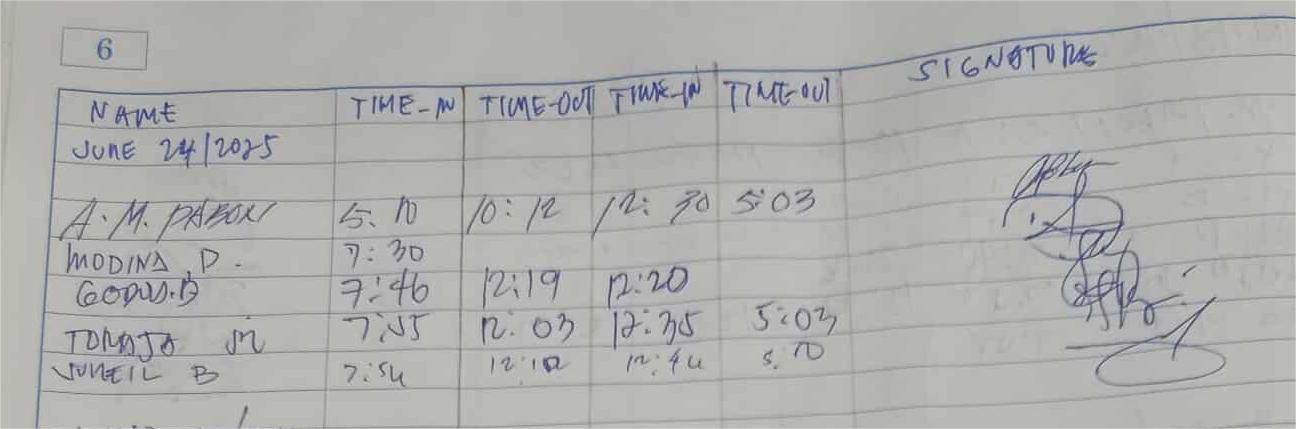 6
NAME TIME-IN TIME-OUT TIME-IN TIME-OUT SIGNATURE
JUNE 24/2025
A.M. PABON 5:10 10:12 12:30 5:03
MODINA, D. 7:30
7:46 12:19 12:20
7:55 12:03 12:35 5:03
JUNEIL B 7:54 12:12 12:44 5:10